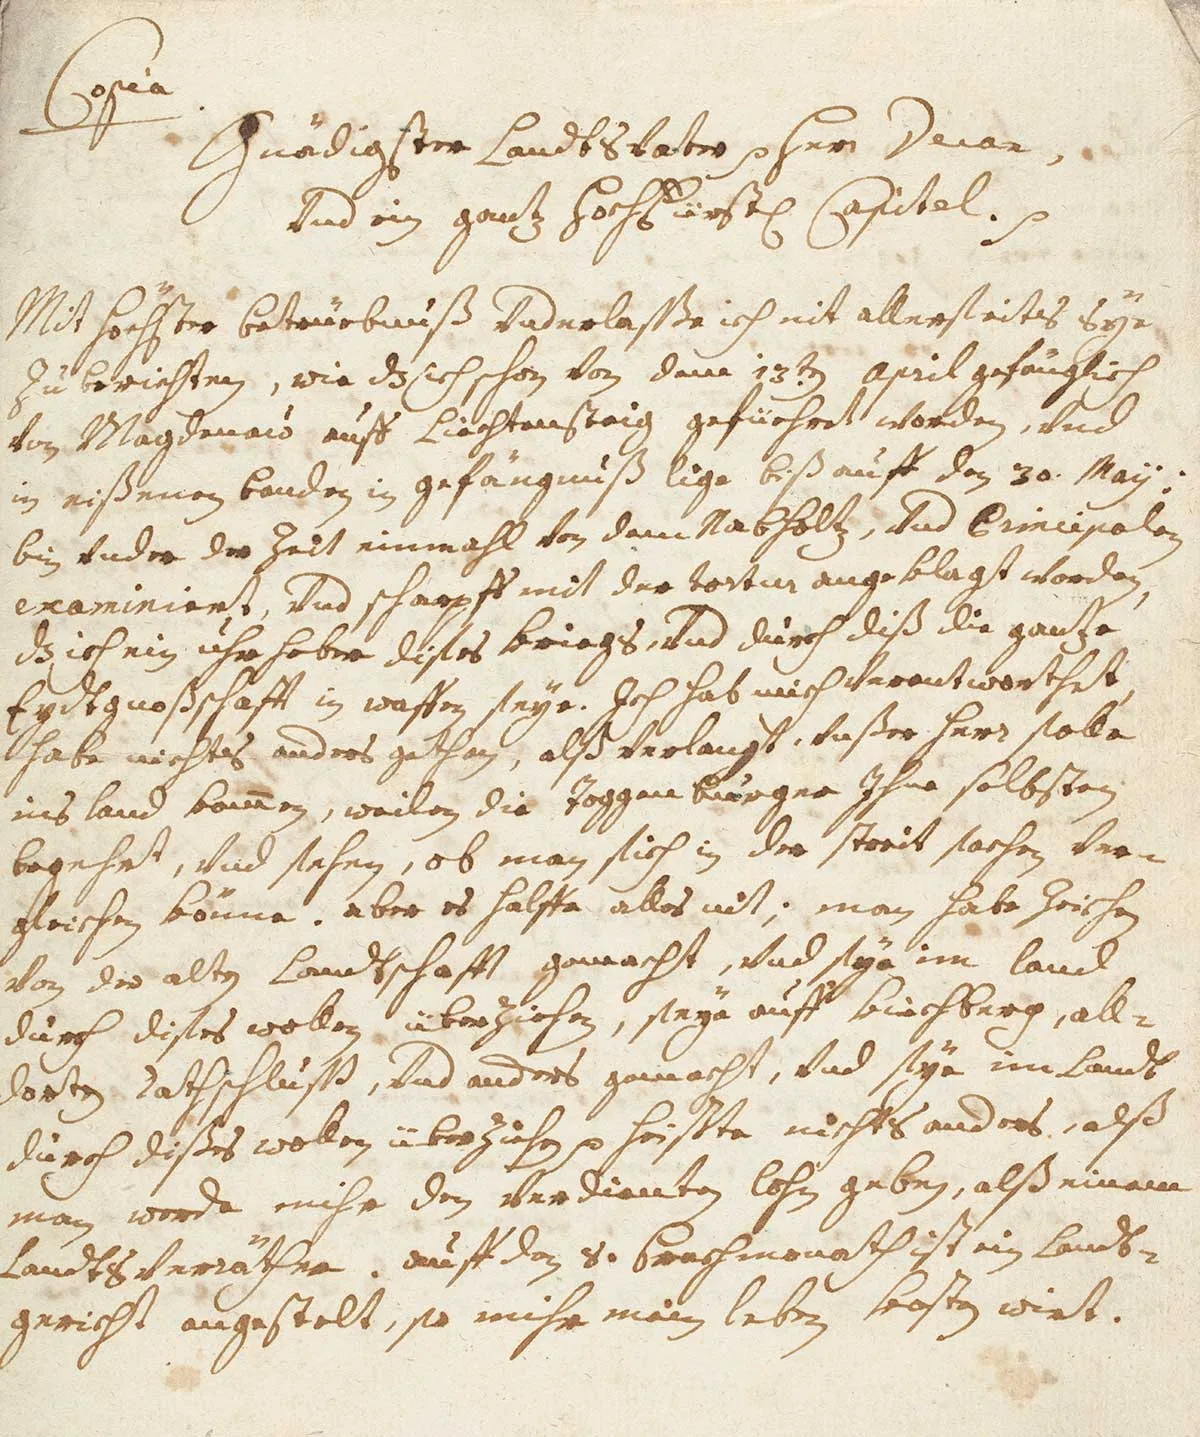 Copia
Gnädigster Landtsvater p Herr Decan,
Vnd ein gantz hochfürstl. Capitel. p
Mit höchster betrüebnuß vnderlaße ich nit allerseites Sÿe
Zu berichten, wie dz ich schon von dem 13.ten April gefänglich
von Magdenaü auff Liechtensteig gefüehret worden, vnd
in eißenen banden in gefängnuß lige biß auff den 30. Maÿ:
bin vnder der Zeit einmahl von dem Nabholtz, vnd Principalen
examiniert, vnd scharpff mit der tortur angeklagt worden,
dz ich ein vhrheber dises kriegs, vnd durch diß die gantze
Eydtgnoßschafft in waffen seye. Ich hab mich verantworthet,
habe nichtes anders gethan, alß verlangt, vnßer herr solle
ins land kommen, weilen die Toggenburger Ihne selbsten
begehrt, vnd sehen, ob man sich in der streit sachen ver-
gleichen könne. aber es halffe alles nit; man habe Zeichen
von der alten Landtschafft gemacht, vnd sÿe im land
durch dises wollen überziehen, seÿe auff kirchberg, all-
dorten rathschluß, vnd anders gemacht, vnd sÿe im Landt
durch dißes wollen überziehen p heißte nichts anders, alß
man werde mihr den verdienten lohn geben, alß einem
Landtsverräther. auff den 8. brachmonath ist ein Landt-
gericht angestelt, so mihr mein leben kosten wirt.